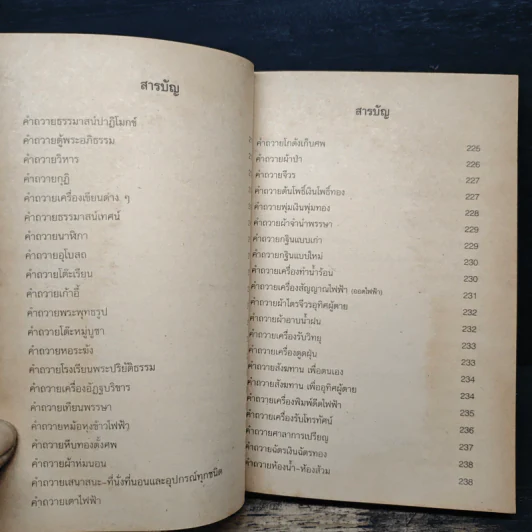 สารบัญ
คำถวายธรรมาสน์ปาฏิโมกข์
คำถวายตู้พระอภิธรรม
คำถวายวิหาร
คำถวายกุฏิ
คำถวายเครื่องเขียนต่าง ๆ
คำถวายธรรมาสน์เทศน์
คำถวายนาฬิกา
คำถวายอุโบสถ
คำถวายโต๊ะเรียน
คำถวายเก้าอี้
คำถวายพระพุทธรูป
คำถวายโต๊ะหมู่บูชา
คำถวายหอระฆัง
คำถวายโรงเรียนพระปริยัติธรรม
คำถวายเครื่องอัฏฐบริขาร
คำถวายเทียนพรรษา
คำถวายหม้อหุงข้าวไฟฟ้า
คำถวายหีบทองตั้งศพ
คำถวายผ้าห่มนอน
คำถวายเสนาสนะ-ที่นั่งที่นอนและอุปกรณ์ทุกชนิด
คำถวายเตาไฟฟ้า
สารบัญ
คำถวายโกดังเก็บศพ 225
คำถวายผ้าป่า 226
คำถวายจีวร 227
คำถวายต้นโพธิ์เงินโพธิ์ทอง 227
คำถวายพุ่มเงินพุ่มทอง 228
คำถวายผ้าจำนำพรรษา 229
คำถวายกฐินแบบเก่า 229
คำถวายกฐินแบบใหม่ 230
คำถวายเครื่องทำน้ำร้อน 230
คำถวายเครื่องสัญญาณไฟฟ้า (ออดไฟฟ้า) 231
คำถวายผ้าไตรจีวรอุทิศผู้ตาย 232
คำถวายผ้าอาบน้ำฝน 232
คำถวายเครื่องรับวิทยุ 233
คำถวายเครื่องดูดฝุ่น 233
คำถวายสังฆทาน เพื่อตนเอง 234
คำถวายสังฆทาน เพื่ออุทิศผู้ตาย 234
คำถวายเครื่องพิมพ์ดีดไฟฟ้า 235
คำถวายเครื่องรับโทรทัศน์ 236
คำถวายศาลาการเปรียญ 237
คำถวายฉัตรเงินฉัตรทอง 238
คำถวายห้องน้ำ-ห้องส้วม 238